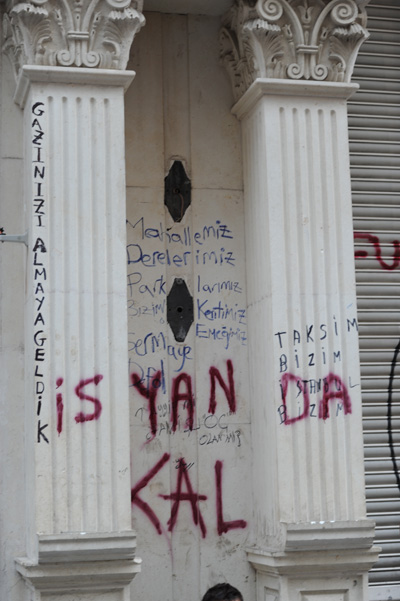 GAZINIZI ALMAYA GELDİK
Mahallemiz
Derelerimiz
Parklarımız
Bizim Kentimiz
Emeğimiz
Sermaye
Defol
TAKSİM
BİZİM
İSTANBUL
BİZİM
isYAN DA
KAL